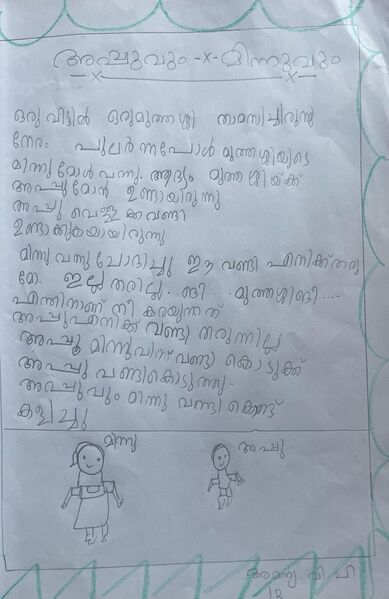 അപ്പുവും -x- മിന്നുവും
ഒരു വീട്ടിൽ ഒരുമുത്തശ്ശി താമസിച്ചിരുന്നു
നേരം പുലർന്നപോൾ മുത്തശ്ശിയുടെ
മിന്നുമോൾ വന്നു. ആദ്യം മുത്തശ്ശിയ്ക്ക്
അപ്പുമോൻ ഉണ്ടായിരുന്നു
അപ്പു വെള്ളക്കവണ്ടി
ഉണ്ടാക്കുകയായിരുന്നു
മിന്നു വന്നു ചോദിച്ചു ഈ വണ്ടി എനിക്ക് തരു
മോ. ഇല്ല തരില്ല. ങീ... മുത്തശ്ശിങീ....
എന്തിനാണ് നീ കരയുന്നത്
അപ്പുഎനിക്ക് വണ്ടി തരുന്നില്ല
അപ്പൂ മിന്നുവിന് വണ്ടി കൊടുക്ക്
അപ്പു വണ്ടികൊടുത്തു.
അപ്പുവും മിന്നു വണ്ടി കൊണ്ട്
കളിച്ചു
മിന്നു
അപ്പു
വി പി